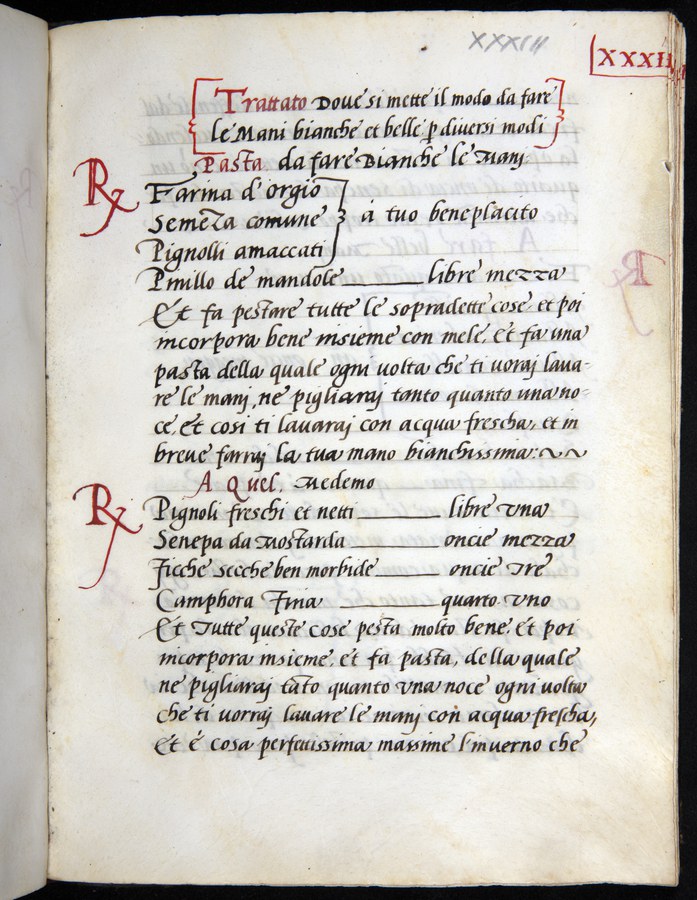 XXXIII
XXXII
Trattato Doue si mette il modo da fare
le Mani bianche et belle ꝑ diuersi modi
Pasta da fare Bianche le Manj
℞ Farina d'orgio
Semēza comune
Pignolli amaccati
á tuo beneplacito
Pmillo de mandole libre mezza
Et fa pestare tutte le sopradette cose, et poi
incorpora bene insieme con mele, et fa una
pasta della quale ogni volta che ti voraj laua-
re le manj, ne pigliaraj tanto quanto una no-
ce, et cosi ti lauaraj con acqua frescha, et in
breue farraj la tua mano bianchissima:
A Quel. Medemo
℞ Pignoli freschi et netti libre vna
Senepa da Mostarda oncie mezza
Ficche secche ben morbide oncie Tre
Camphora Fina quarto vno
Et Tutte queste cose pesta molto bene, et poi
incorpora insieme, et fa pasta, della quale
ne pigliaraj tāto quanto vna noce ogni volta
che ti vorraj lauare le manj con acqua frescha,
Et é cosa perfettissima massime l'inuerno che